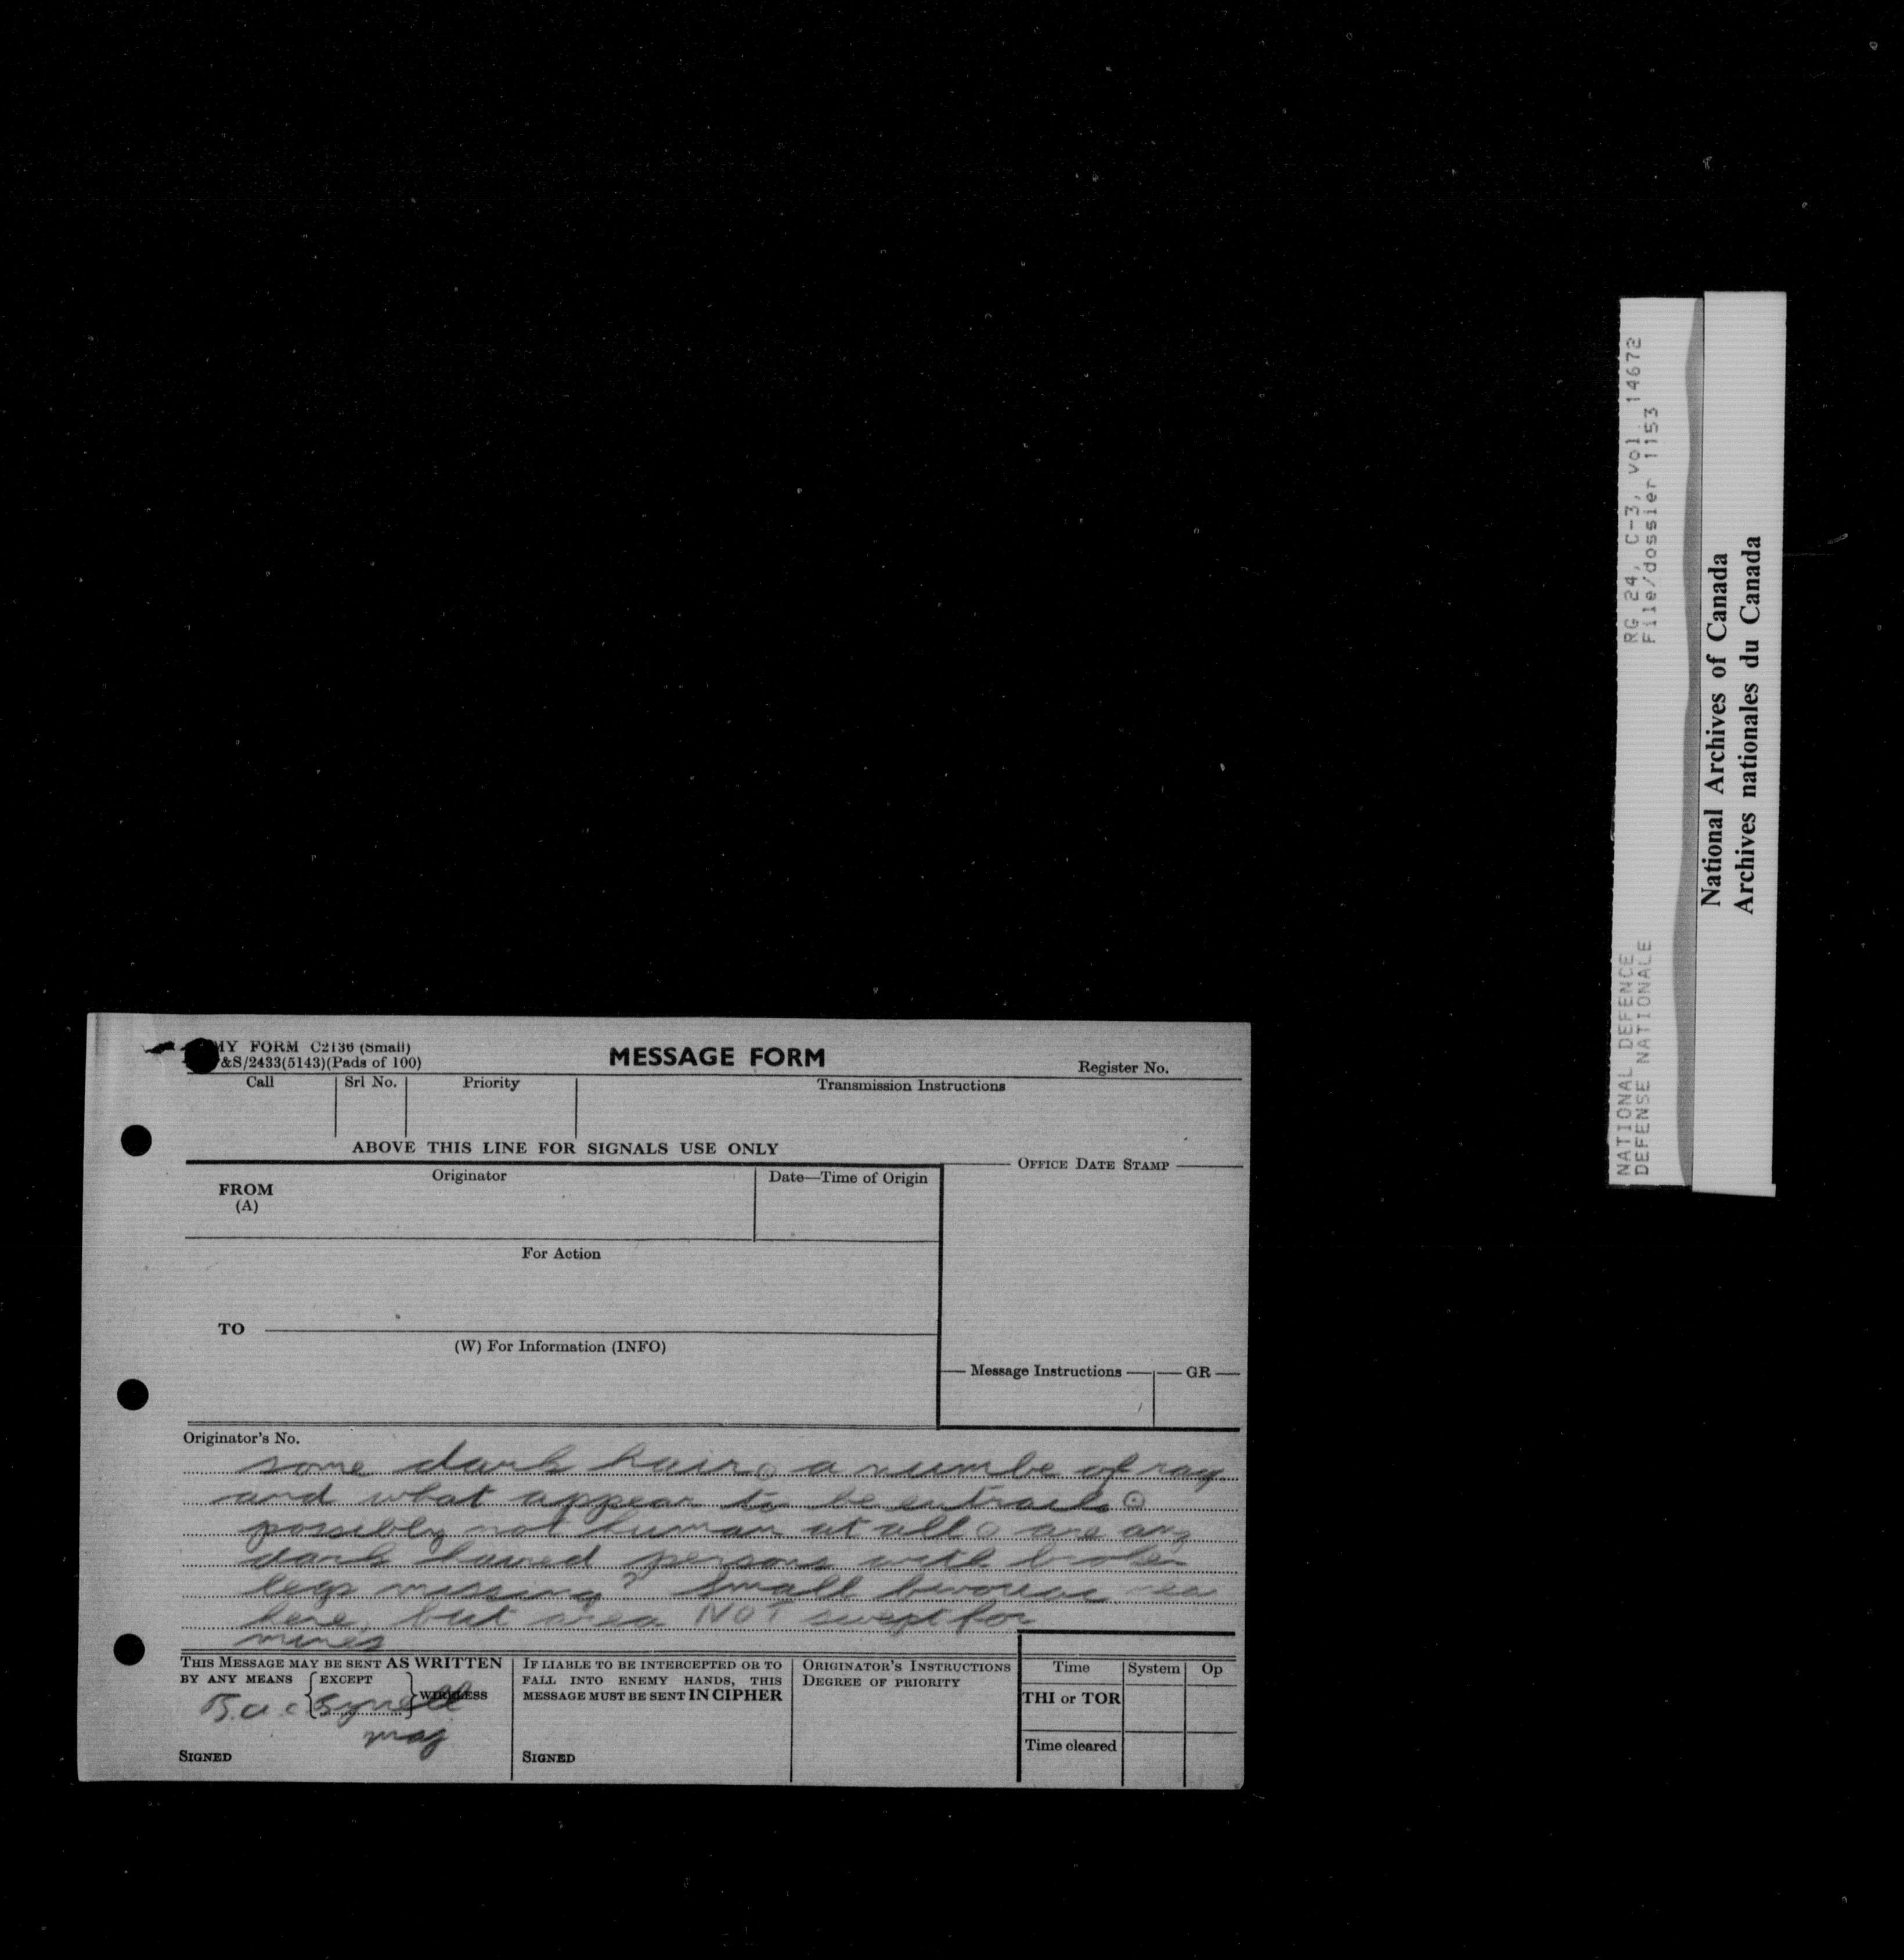 MY FORM C2136 (Small)
&S/2433(5143)(Pads of 100)
MESSAGE FORM
Register No.
Call
Srl No.
Priority
Transmission Instructions
ABOVE THIS LINE FOR SIGNALS USE ONLY
OFFICE DATE STAMP
FROM
(A)
Originator
Date—Time of Origin
For Action
TO
(W) For Information (INFO)
Message Instructions
GR
Originator's No.
some dark hair o a numbe of rags
and what appear to be entrails ⊙
possibly not human at all o are any
dark haired persons with broken
legs missing? Small bivouac near
here, but area NOT swept for
mines
THIS MESSAGE MAY BE SENT AS WRITTEN
BY ANY MEANS { EXCEPT } WIRELESS
Maj
SIGNED
IF LIABLE TO BE INTERCEPTED OR TO
FALL INTO ENEMY HANDS, THIS
MESSAGE MUST BE SENT IN CIPHER
SIGNED
ORIGINATOR'S INSTRUCTIONS
DEGREE OF PRIORITY
Time
System
Op
THI or TOR
Time cleared
NATIONAL DEFENCE
DEFENSE NATIONALE
RG 24, C-3, vol. 14672
File/dossier 1153
National Archives of Canada
Archives nationales du Canada